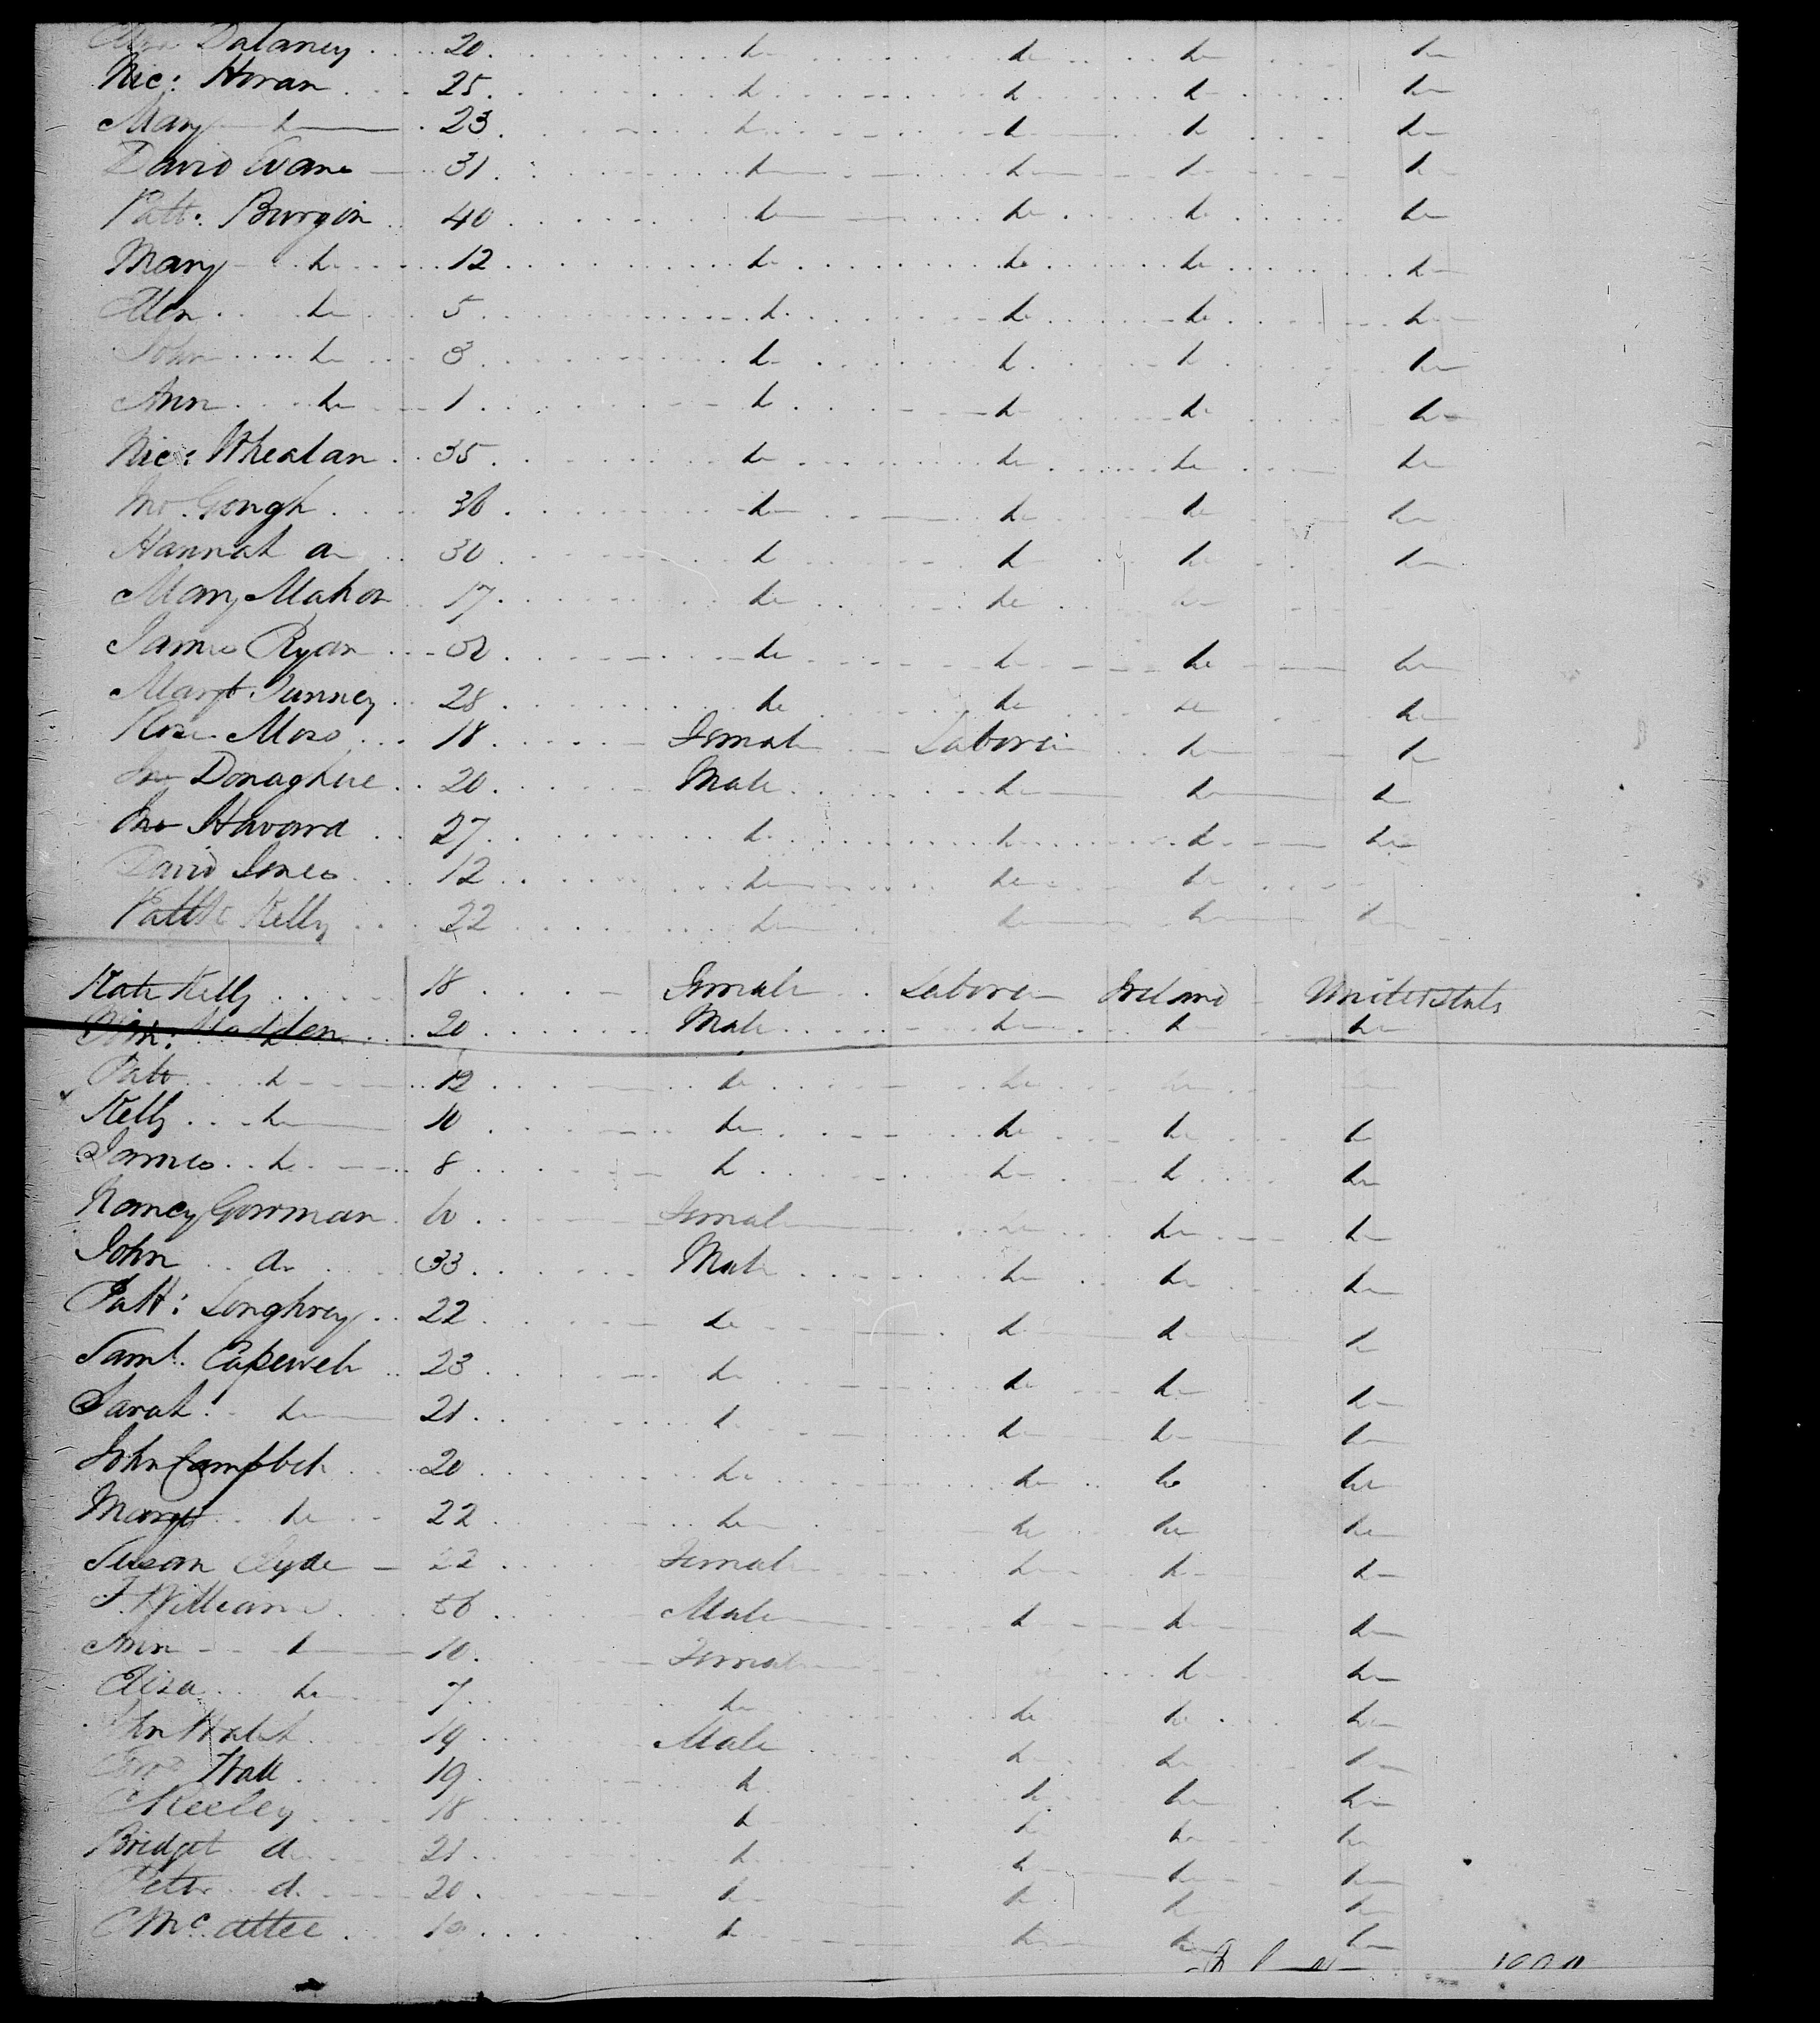 Dalaney 20 do do do do
Nic: Horan 25 do do do do
Mary do 23 do do do do
David Evans 31 do do do do
Patt: Burgin 40 do do do do
Mary do 12 do do do do
Ellen do 5 do do do do
John do 3 do do do do
Ann do 1 do do do do
Nic: Whealan 35 do do do do
Jno. Gough 36 do do do do
Hannah do 30 do do do do
Mary Mahon 17 do do do
James Ryan do do do do
Margt. 28 do do do do
18 Female Laborer do do
Jno Donaghue 20 Male do do do
Jno Havard 27 do do do do
David Jones 12 do do do
Pattk Kelly 22 do do do do
Kate Kelly 18 Female Laborer Ireland United Stats
Madden 20 Male do do do
Patt do 12 do do do
Kelly do 10 do do do do
James do 8 do do do do
Nancy Gorman Female do do do
John do 33 Male do do do
Patt: Loughrey 22 do do do do
Saml. Capewell 23 do do do do
Sarah do 21 do do do do
John Campbell 20 do do do do
Margt do 22 do do do do
Susan Clyde 22 Female do do do
Williams Male do do do
Ann do 10 Female do do
Eliza do 7 do do do do
John Walsh 19 Male do do do
Hall 19 do do do do
Keeley 18 do do do do
Bridget do 21 do do do do
Peter do 20 do do do do
C McAttee do do do do